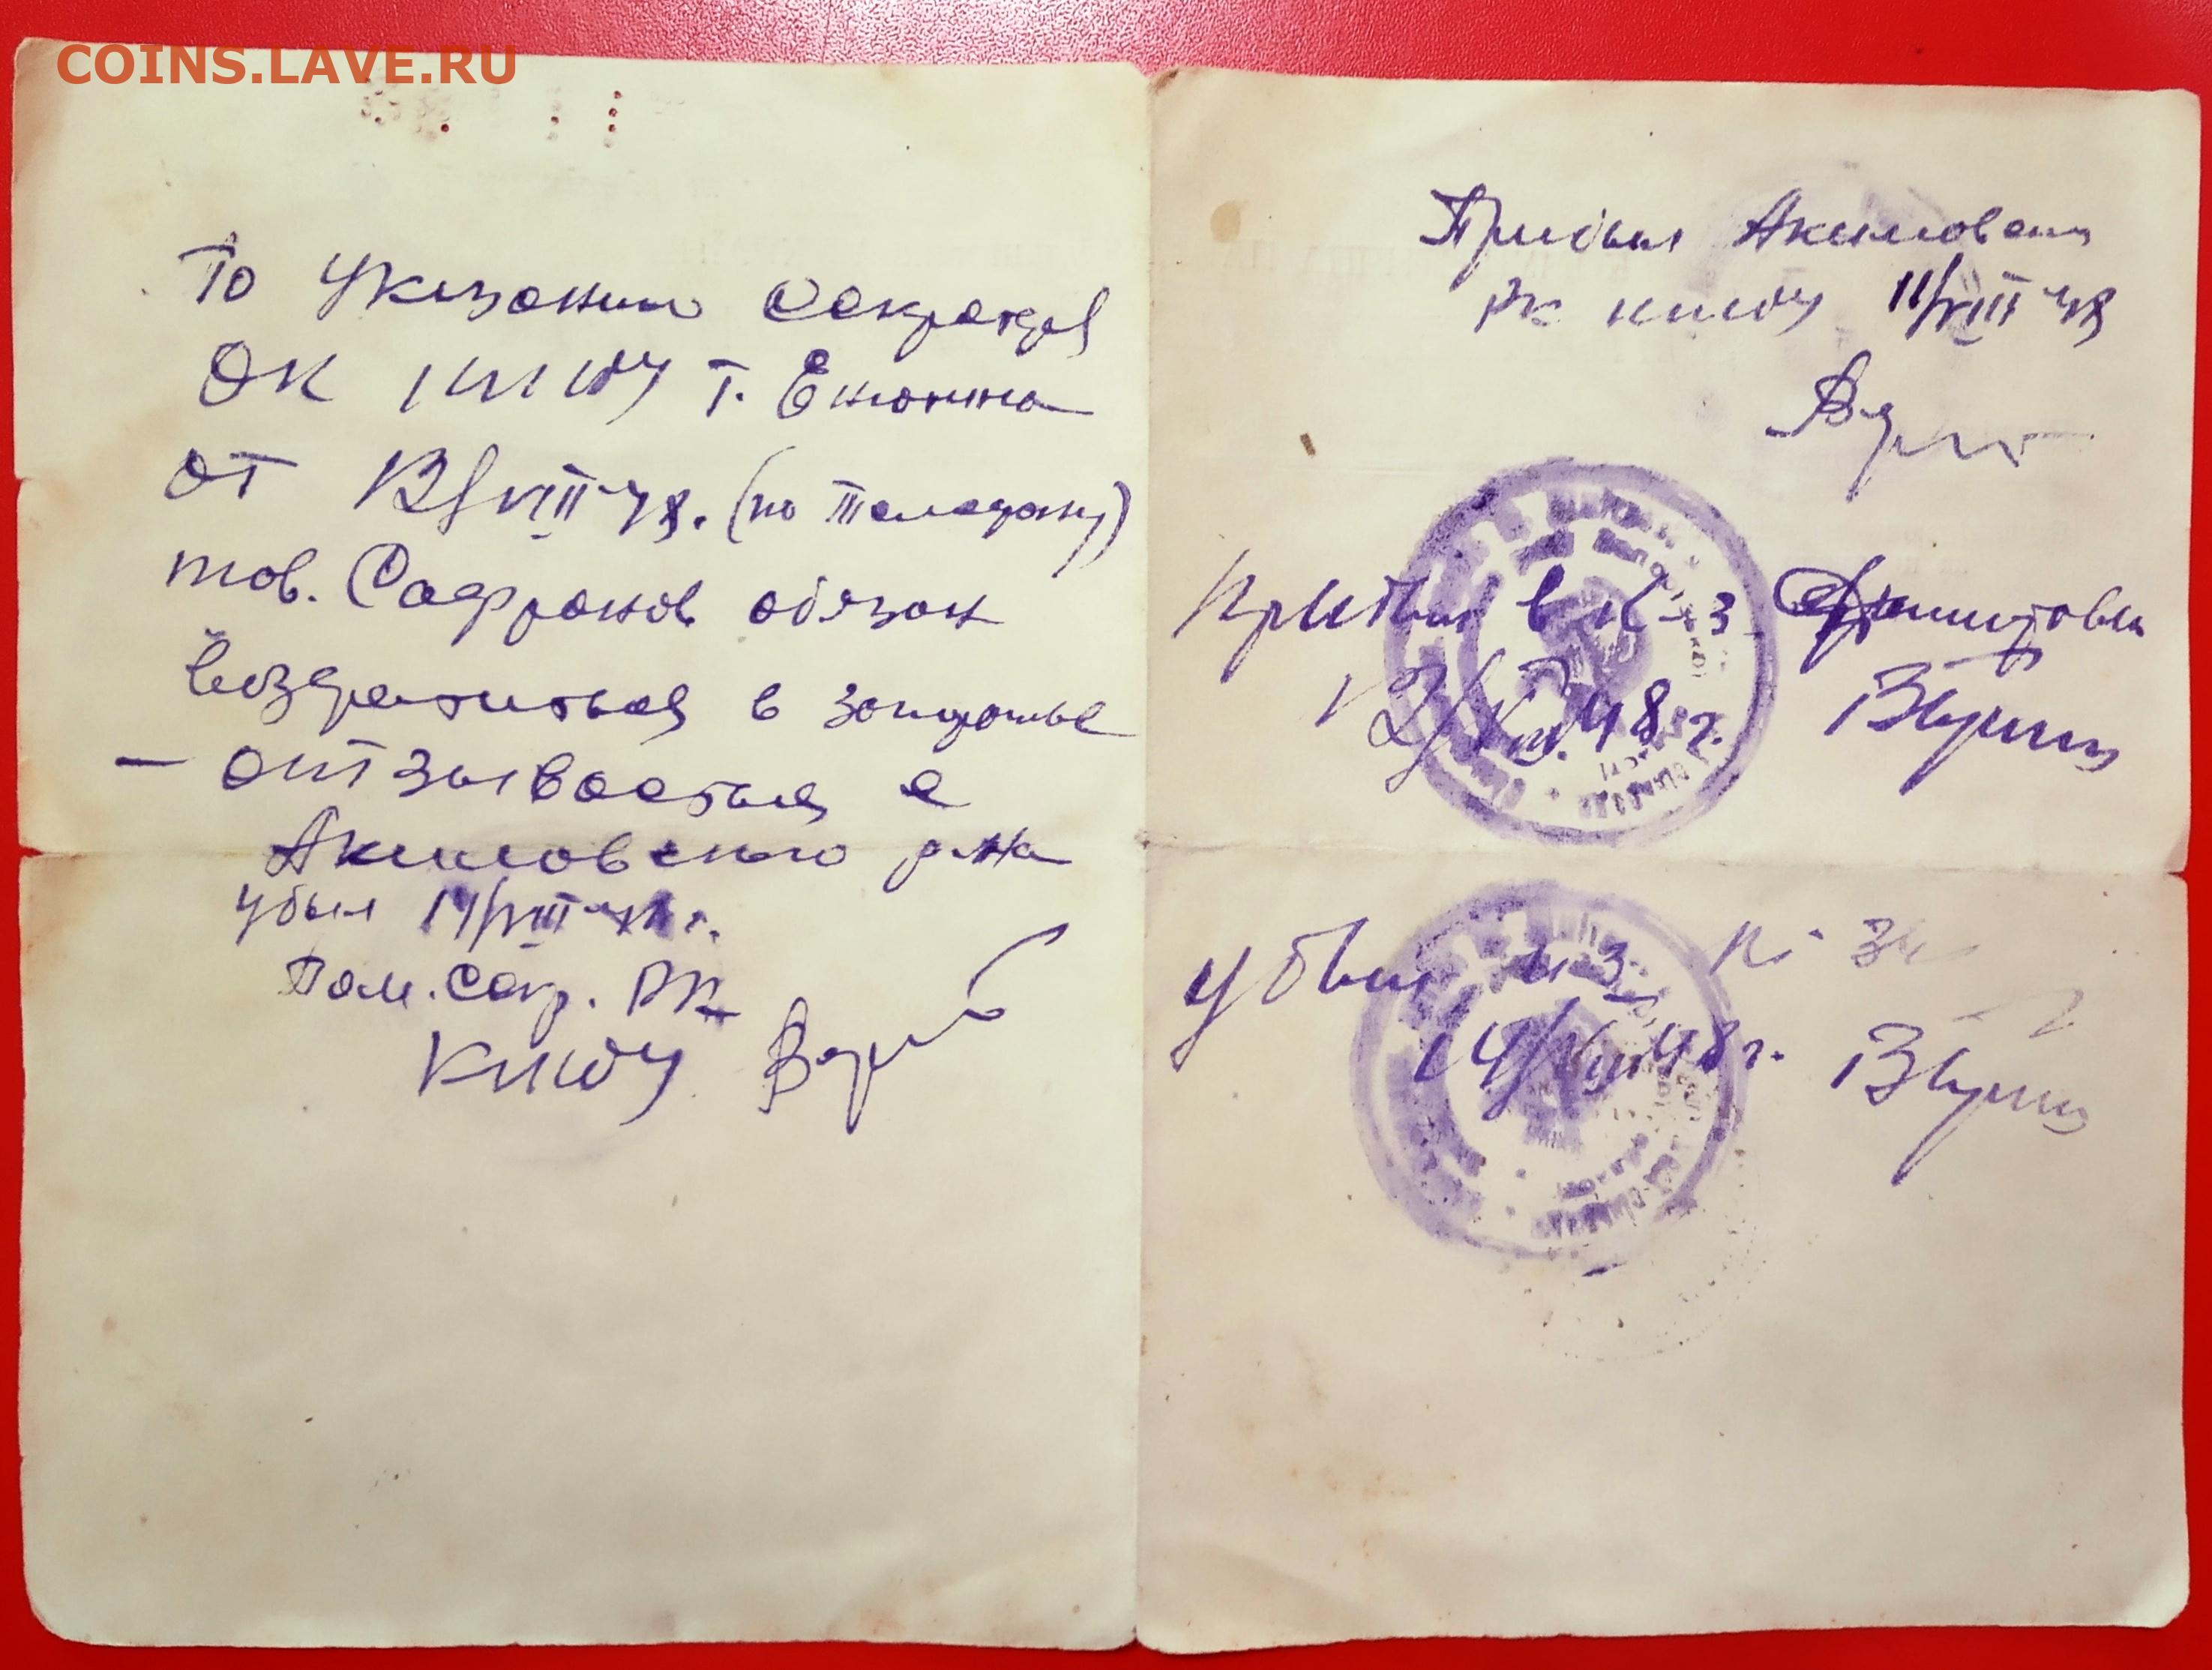 COINS.LAVE.RU
По указанию секретаря
ОК КП(б)У т. Енютина
от 13/VIII-48. (по телефону)
тов. Сафронов обязан
возвратиться в запорожье
— отзывается с
Акимовского р-на
убыл 14/VIII-48 г.
Пом. секр. РК
КП(б)У
Прибыл Акимовский
РК КП(б)У 11/VIII-48
Прибыл в к-з
12/VIII 48 г.
Убыл из к-за
14/VIII 48 г.